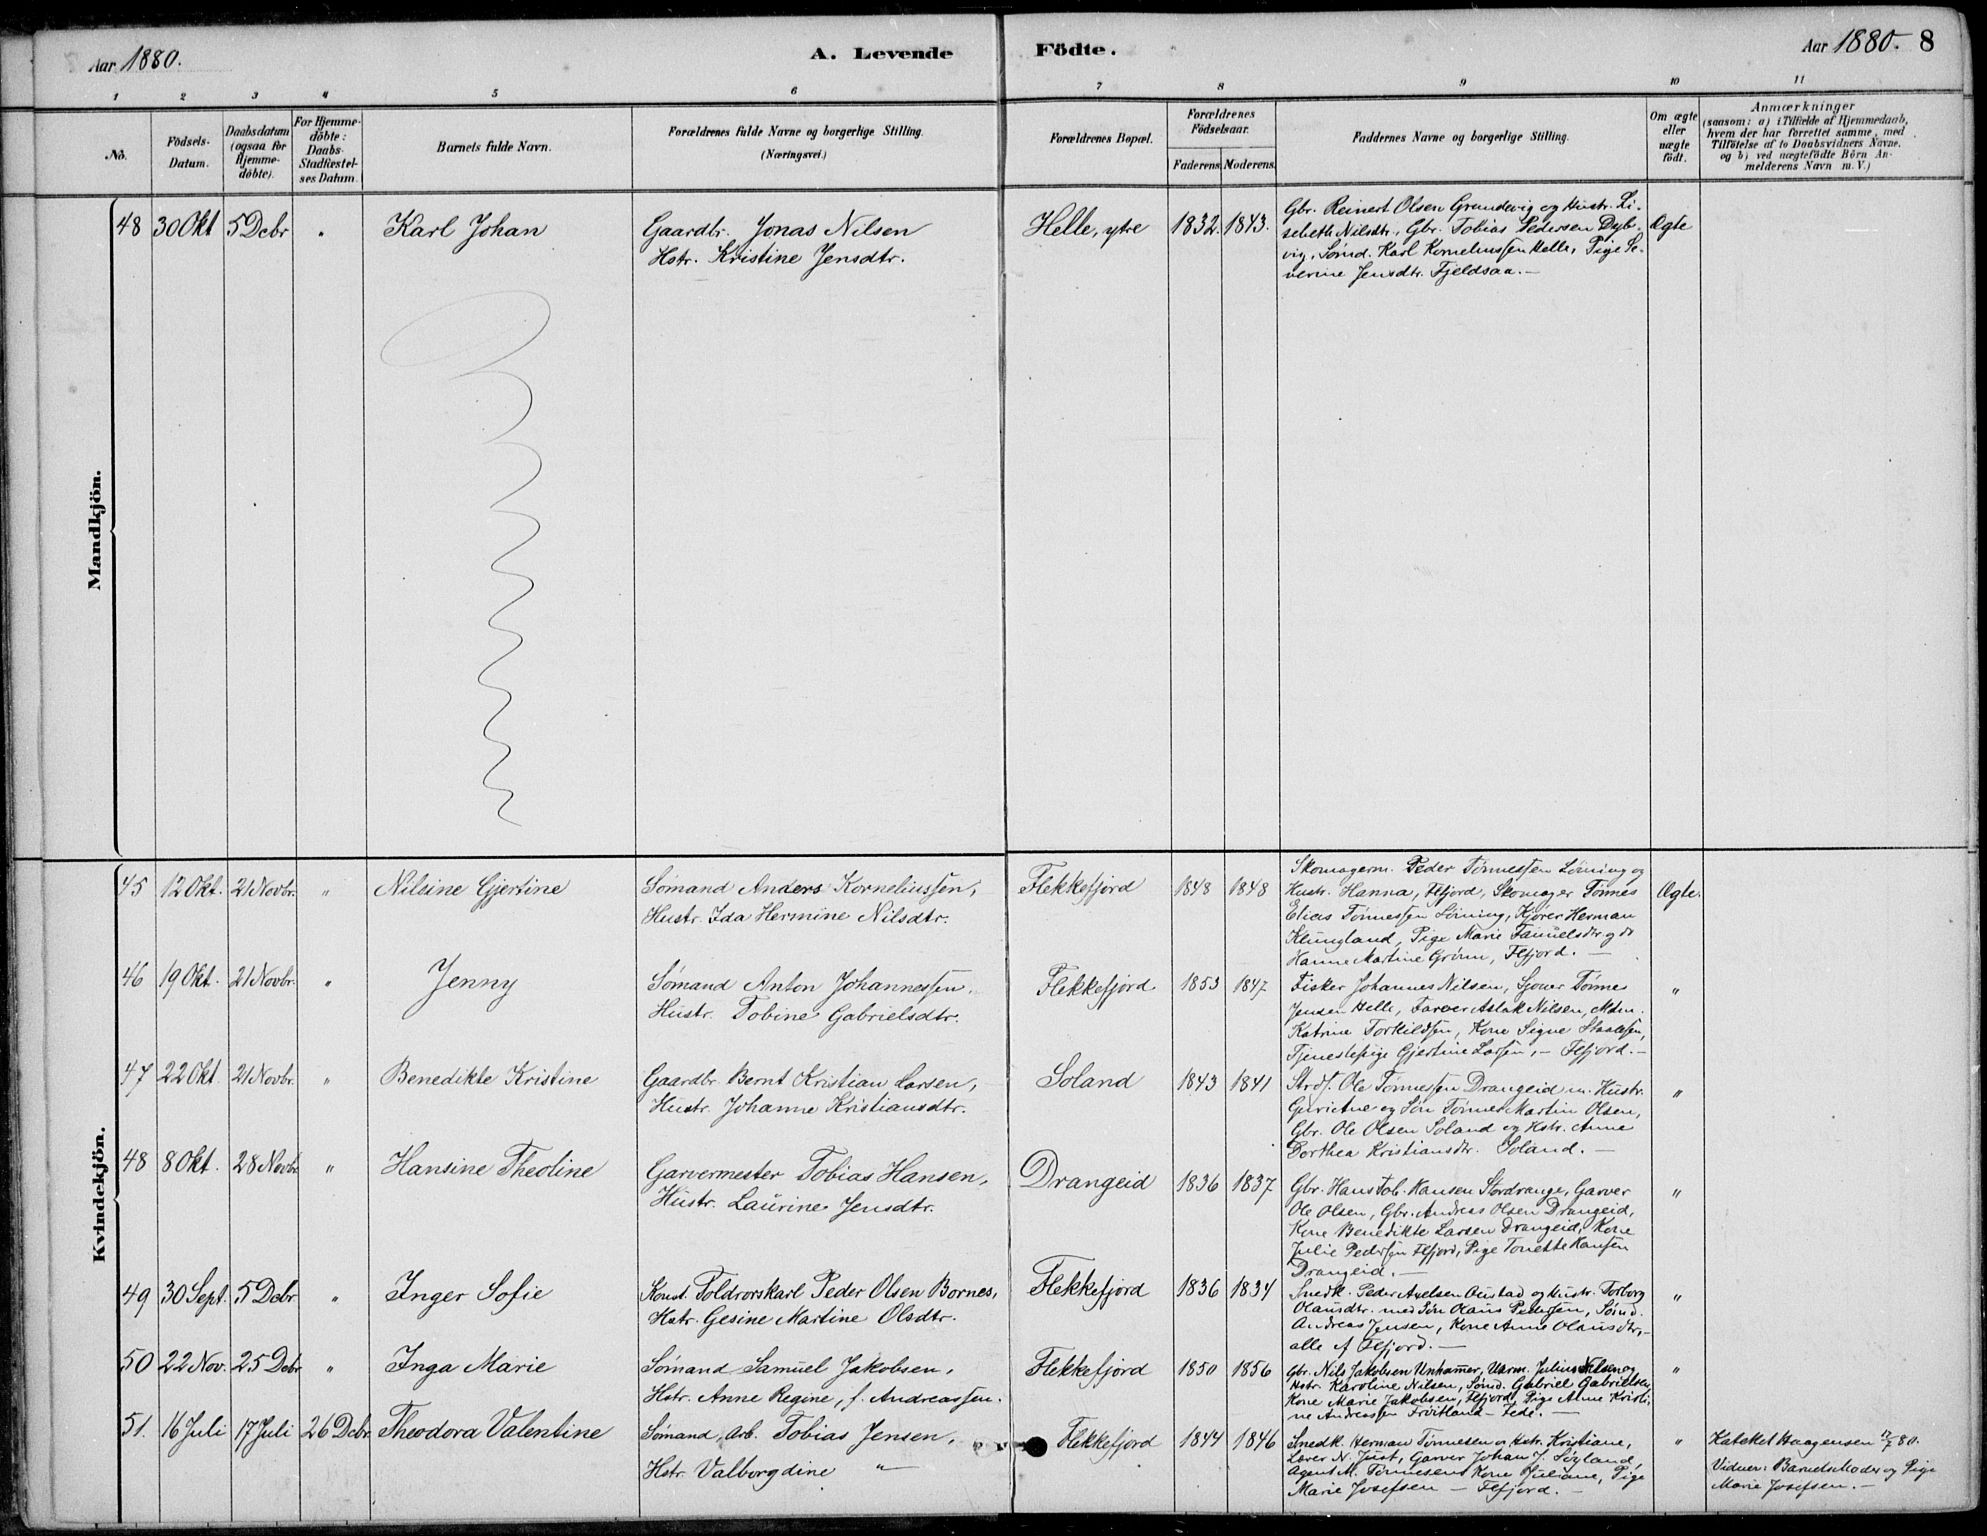 Aar 1880.
A. Levende
Födte.
Aar 1880. 8
1 2 3 4 5 6 7 8 9 10 11
No.
Födsels-
Datum.
Daabsdatum
(ogsaa for
Hjemme-
döbte).
For Hjemme-
döbte:
Daabs-
Stadfæstel-
ses Datum.
Barnets fulde Navn.
Forældrenes fulde Navne og borgerlige Stilling.
(Næringsvei.)
Forældrenes Bopæl.
Forældrenes
Födselsaar.
Faderens. Moderens.
Faddernes Navne og borgerlige Stilling.
Om ægte
eller
uægte
födt.
Anmærkninger
(saasom: a) i Tilfælde af Hjemmedaab,
hvem der har forrettet samme, med
Tilföielse af to Daabsvidners Navne,
og b) ved uægtefödte Börn An-
melderens Navn m. V.)
Mandkjön.
48 30 Okt 5 Dcbr " Karl Johan
Gaardbr. Jonas Nilsen
Hstr. Kristine Jensdtr.
Helle, ytre 1832. 1843.
Gbr. Reinert Olsen Grundevig og Hustr. Li-
sebeth Nilsdtr., Gbr. Tobias Pedersen Dyb-
vig, Sømd. Karl Korneliussen Helle, Pige Se-
verine Jensdtr. Fjeldsaa. —
Ægte
Kvindekjön.
45 12 Okt. 21 Novbr. " Nilsine Gjertine
Sømand Anders Korneliussen,
Hustr. Ida Hermine Nilsdtr.
Flekkefjord 1848 1848
Skomagerm. Peder Tønnessen Løining og
Hustr. Hanna, Flfjord, Skomager Tønnes
Elias Tønnessen Løining, Kjører Herman
Klungland, Pige Marie Samuelsdtr og do
Hanne Martine Grønn, Flfjord. —
Ægte.
46 19 Okt. 21 Novbr. " Jenny
Sømand Anton Johannessen,
Hustr. Tobine Gabrielsdtr.
Flekkefjord 1853 1847
Fisker Johannes Nilsen, Tønnes
Jensen Helle, Farver Aslak Nilsen, Mdm.
Katrine Torkildsen, Kone Signe Staalesen,
Tjenestepige Gjertine Larsen, — Flfjord. —
"
47 22 Okt. 21 Novbr. " Benedikte Kristine
Gaardbr Bernt Kristian Larsen,
Hustr. Johanne Kristiansdtr.
Soland 1843 1841
Ole Tønnessen Drangeid m. Hustr.
og Søn Tønnes Martin Olsen,
Gbr. Ole Olsen Soland og Hstr. Anne
Dorthea Kristiansdtr. Soland. —
"
48 8 Okt. 28 Novbr " Hansine Theoline
Garvermester Tobias Hansen,
Hustr. Laurine Jensdtr.
Drangeid 1836 1837
Gbr. Hans Tob. Hansen Stordrange, Garver
Ole Olsen, Gbr. Andreas Olsen Drangeid,
Kone Benedikte Larsen Drangeid, Kone
Julie Pedersen Flfjord, Pige Tonette Hansen
Drangeid. —
"
49 30 Sept. 5 Dcbr " Inger Sofie
Konst. Toldrorskarl Peder Olsen Bornes,
Hstr. Gesine Martine Olsdtr.
Flekkefjord 1836 1834
Snedk. Peder Axelsen Oustad og Hustr. Torborg
Olausdtr. med Søn Olaus Pedersen, Sømd.
Andreas Jensen, Kone Anne Olausdtr, —
alle af Flfjord. —
"
50 22 Nov. 25 Dcbr " Inga Marie
Sømand Samuel Jakobsen,
Hstr. Anne Regine, f. Andreassen.
Flekkefjord 1850 1856
Gbr. Nils Jakobsen Unhammer, Urm. Julius Nilsen og
Hstr. Karoline Nilsen, Sømd. Gabriel Gabrielsen,
Kone Marie Jakobsen, Flfjord, Pige Anne Kristi-
ne Andreassen Frøitland — Fede. —
"
51. 16 Juli 17 Juli 26 Dcbr. Theodora Valentine
Sømand, Arb. Tobias Jensen,
Hstr. Valborgdine "
Flekkefjord 1844 1846
Snedk. Herman Tønnesen og Hstr. Kristiane,
Lærer N. Just, Garver Johan J. Søyland,
Agent M. Tønnesens Kone Juliane, Pige
Marie Josefsen — Flfjord. —
"
Kateket Haagensen 17/7 80.
Vidner: Barnets Moder og Pige
Marie Josefsen. —